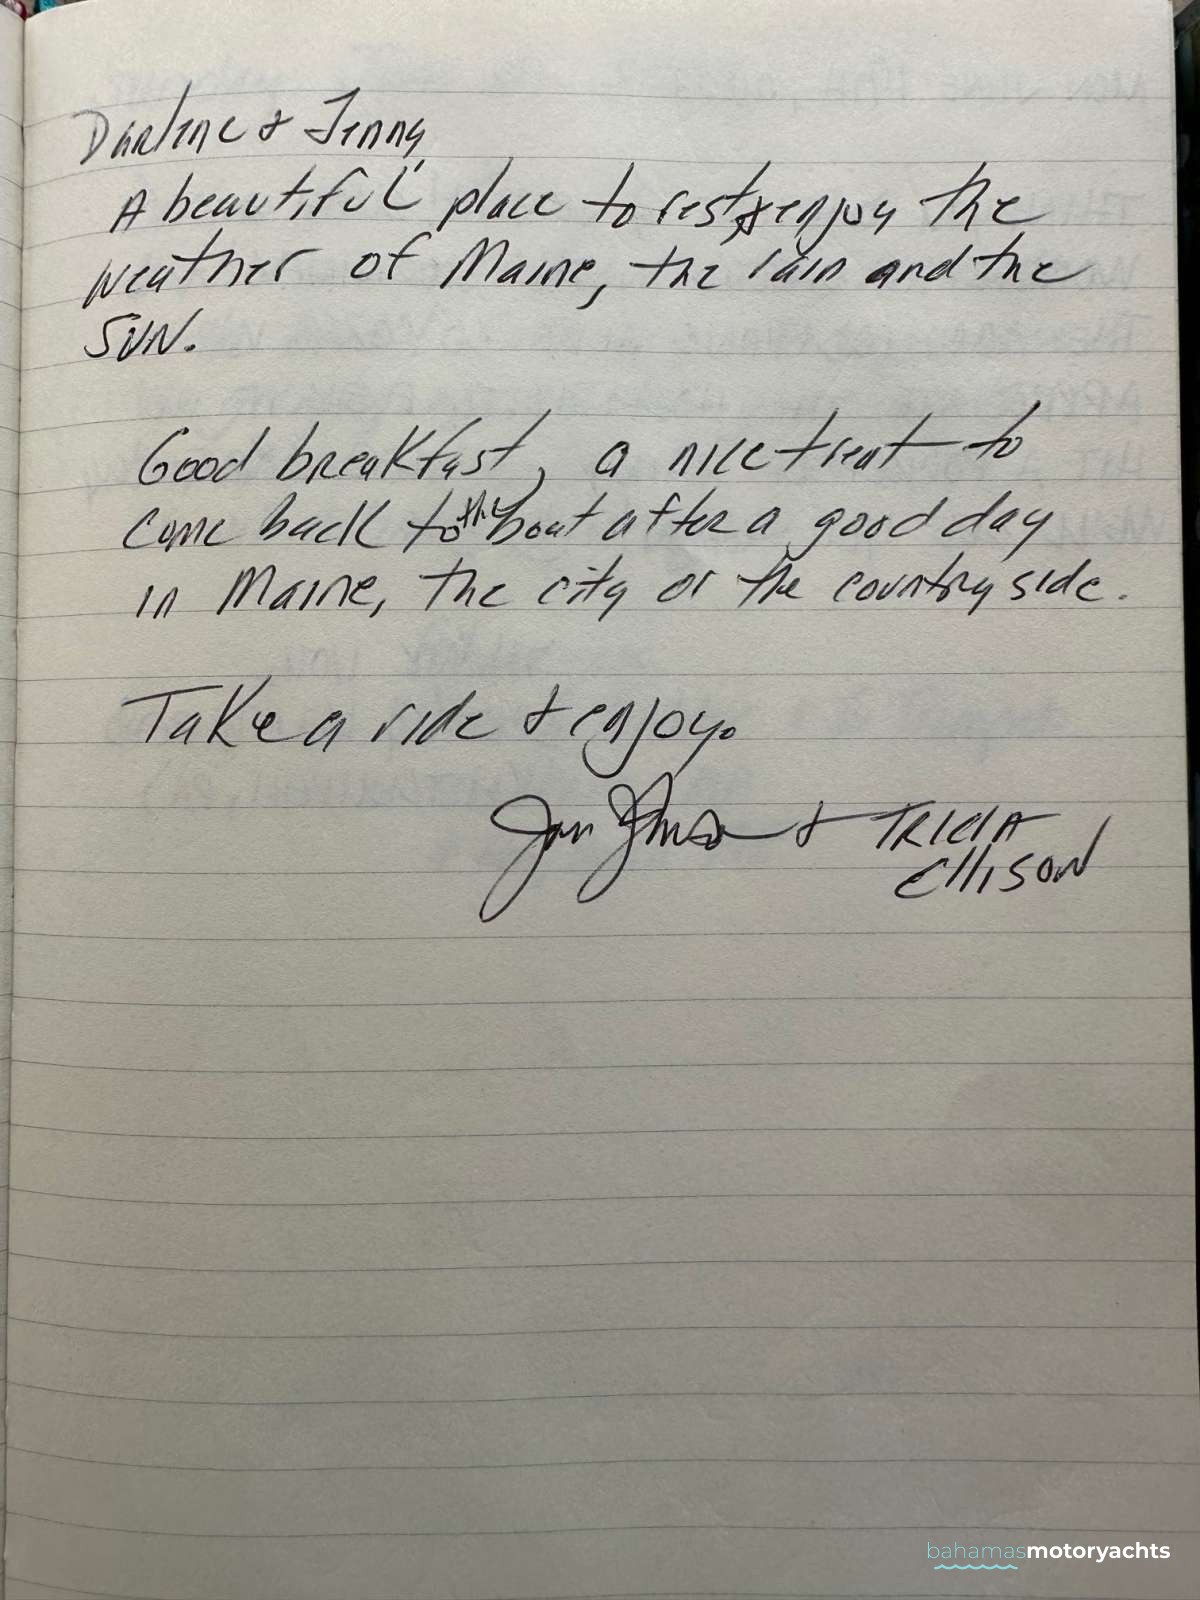 Darlene & Jenny,
A beautiful place to rest, & enjoy the
weather of Maine, the rain and the
SUN.
Good breakfast, a nice treat to
come back to the boat after a good day
in Maine, the city or the country side.
Take a ride & enjoy.
& TRICIA
Ellison
bahamasmotoryachts